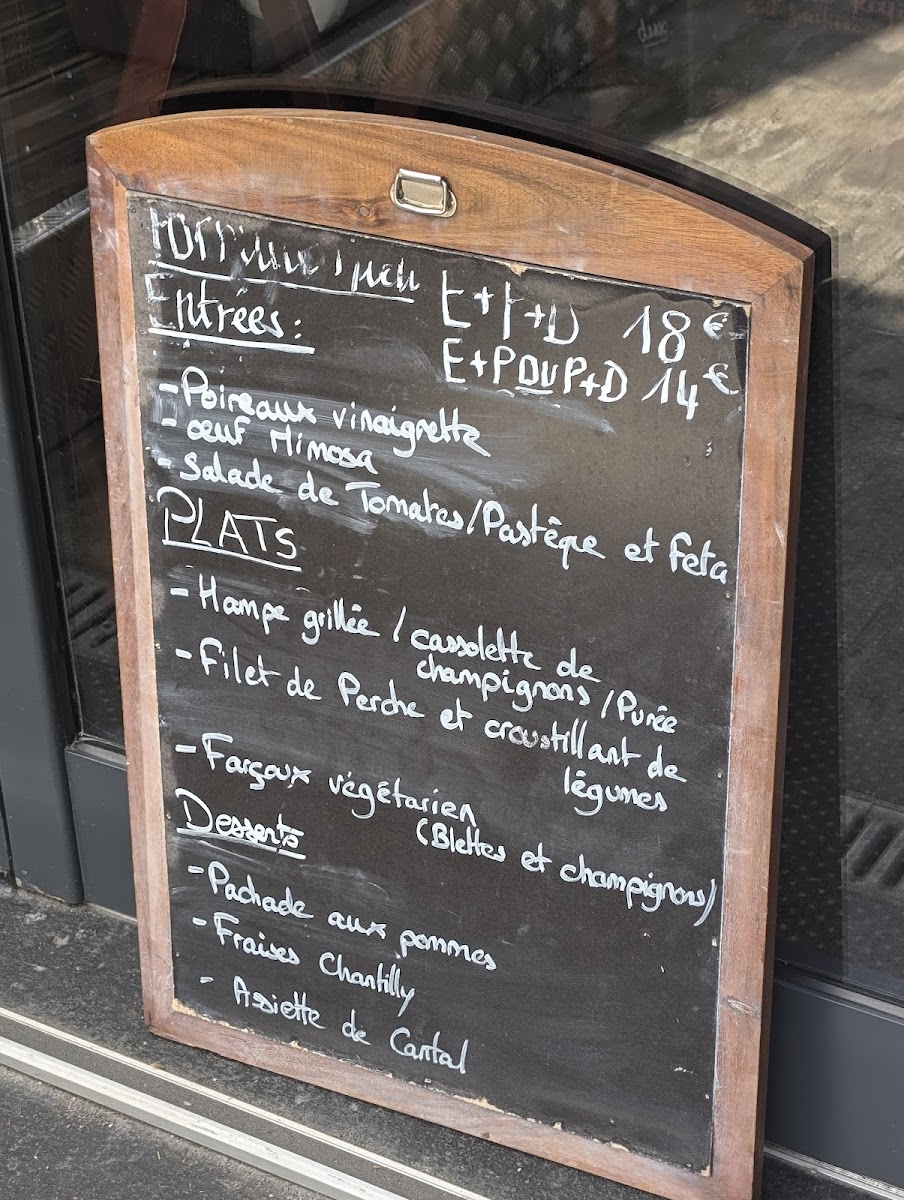 Entrées :
E+P+D 18€
E+P OU P+D 14€
- Poireaux vinaigrette
- œuf Mimosa
- Salade de Tomates/Pastèque et feta
PLATS
- Hampe grillée / cassolette de
champignons / Purée
- Filet de Perche et croustillant de
légumes
- Farçoux végétarien
(Blettes et champignons)
Desserts
- Pachade aux pommes
- Fraises Chantilly
- Assiette de Cantal